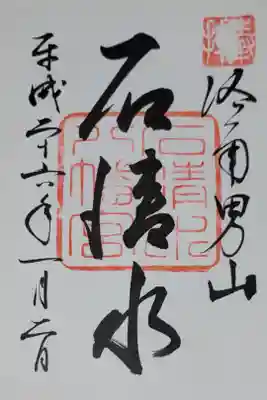 奉拝
洛南男山
石清水
石清水八幡宮
平成二十六年一月二日